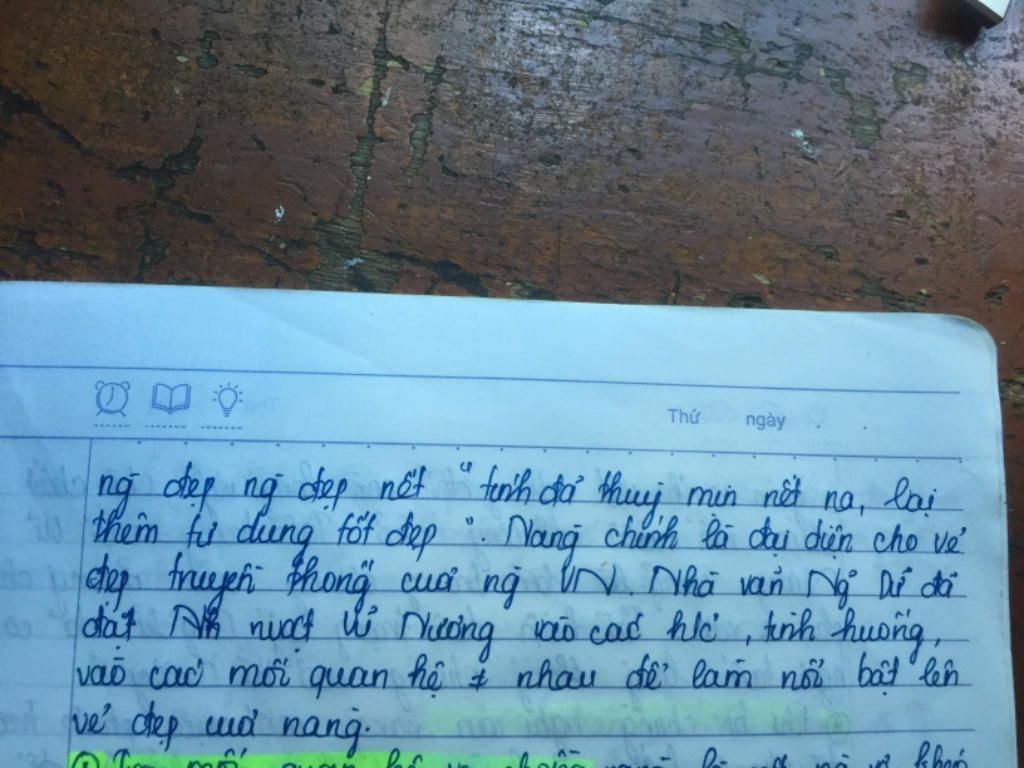 Thứ ngày
ng đẹp ng đẹp nết " tính đã thuỳ mị nết na, lại
thêm tư dung tốt đẹp ". Nàng chính là đại diện cho vẻ
đẹp truyền thống của ng VN. Nhà văn Ng Dữ đã
đặt Vũ Nương vào các h/c, tình huống,
vào các mối quan hệ ≠ nhau để làm nổi bật lên
vẻ đẹp của nàng.
mối quan hệ